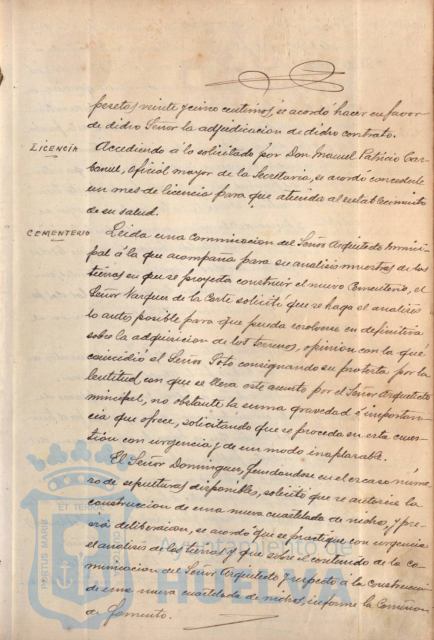 pesetas veinte y cinco centimos, se acordó hacer en favor
de dicho Señor la adjudicacion de dicho contrato.
LICENCIA
Accediendo á lo solicitado por Don Manuel Patricio Car-
bonel, oficial mayor de la Secretaria, se acordó concederle
un mes de licencia para que atienda al restablecimiento
de su salud.
CEMENTERIO
Leida una comunicacion del Señor Arquitecto Munici-
pal á la que acompaña para su analisis muestras de las
tierras en que se proyecta construir el nuevo Cementerio, el
Señor Vazquez de la Corte solicitó que se haga el analisis
lo antes posible para que pueda resolverse en definitiva
sobre la adquisicion de los terrenos, opinion con la que
coincidió el Señor Soto consignando su protesta por la
lentitud con que se lleva este asunto por el Señor Arquitecto
municipal, no obstante la suma gravedad é importan-
cia que ofrece, solicitando que se proceda en esta cues-
tion con urgencia y de un modo inaplazable.
El Señor Dominguez, fundandose en el escaso núme-
ro de sepulturas disponibles, solicitó que se autorice la
construccion de una nueva cuartelada de nichos, y pre-
via deliberacion, se acordó que se practique con urgencia
el analisis de las tierras y que sobre el contenido de la co-
municacion del Señor Arquitecto y respecto á la construccion
de una nueva cuartelada de nichos, informe la Comision
de Fomento.
PORTUS MARIS ET TERRAE CUSTODIO
Ayuntamiento de
HUELVA